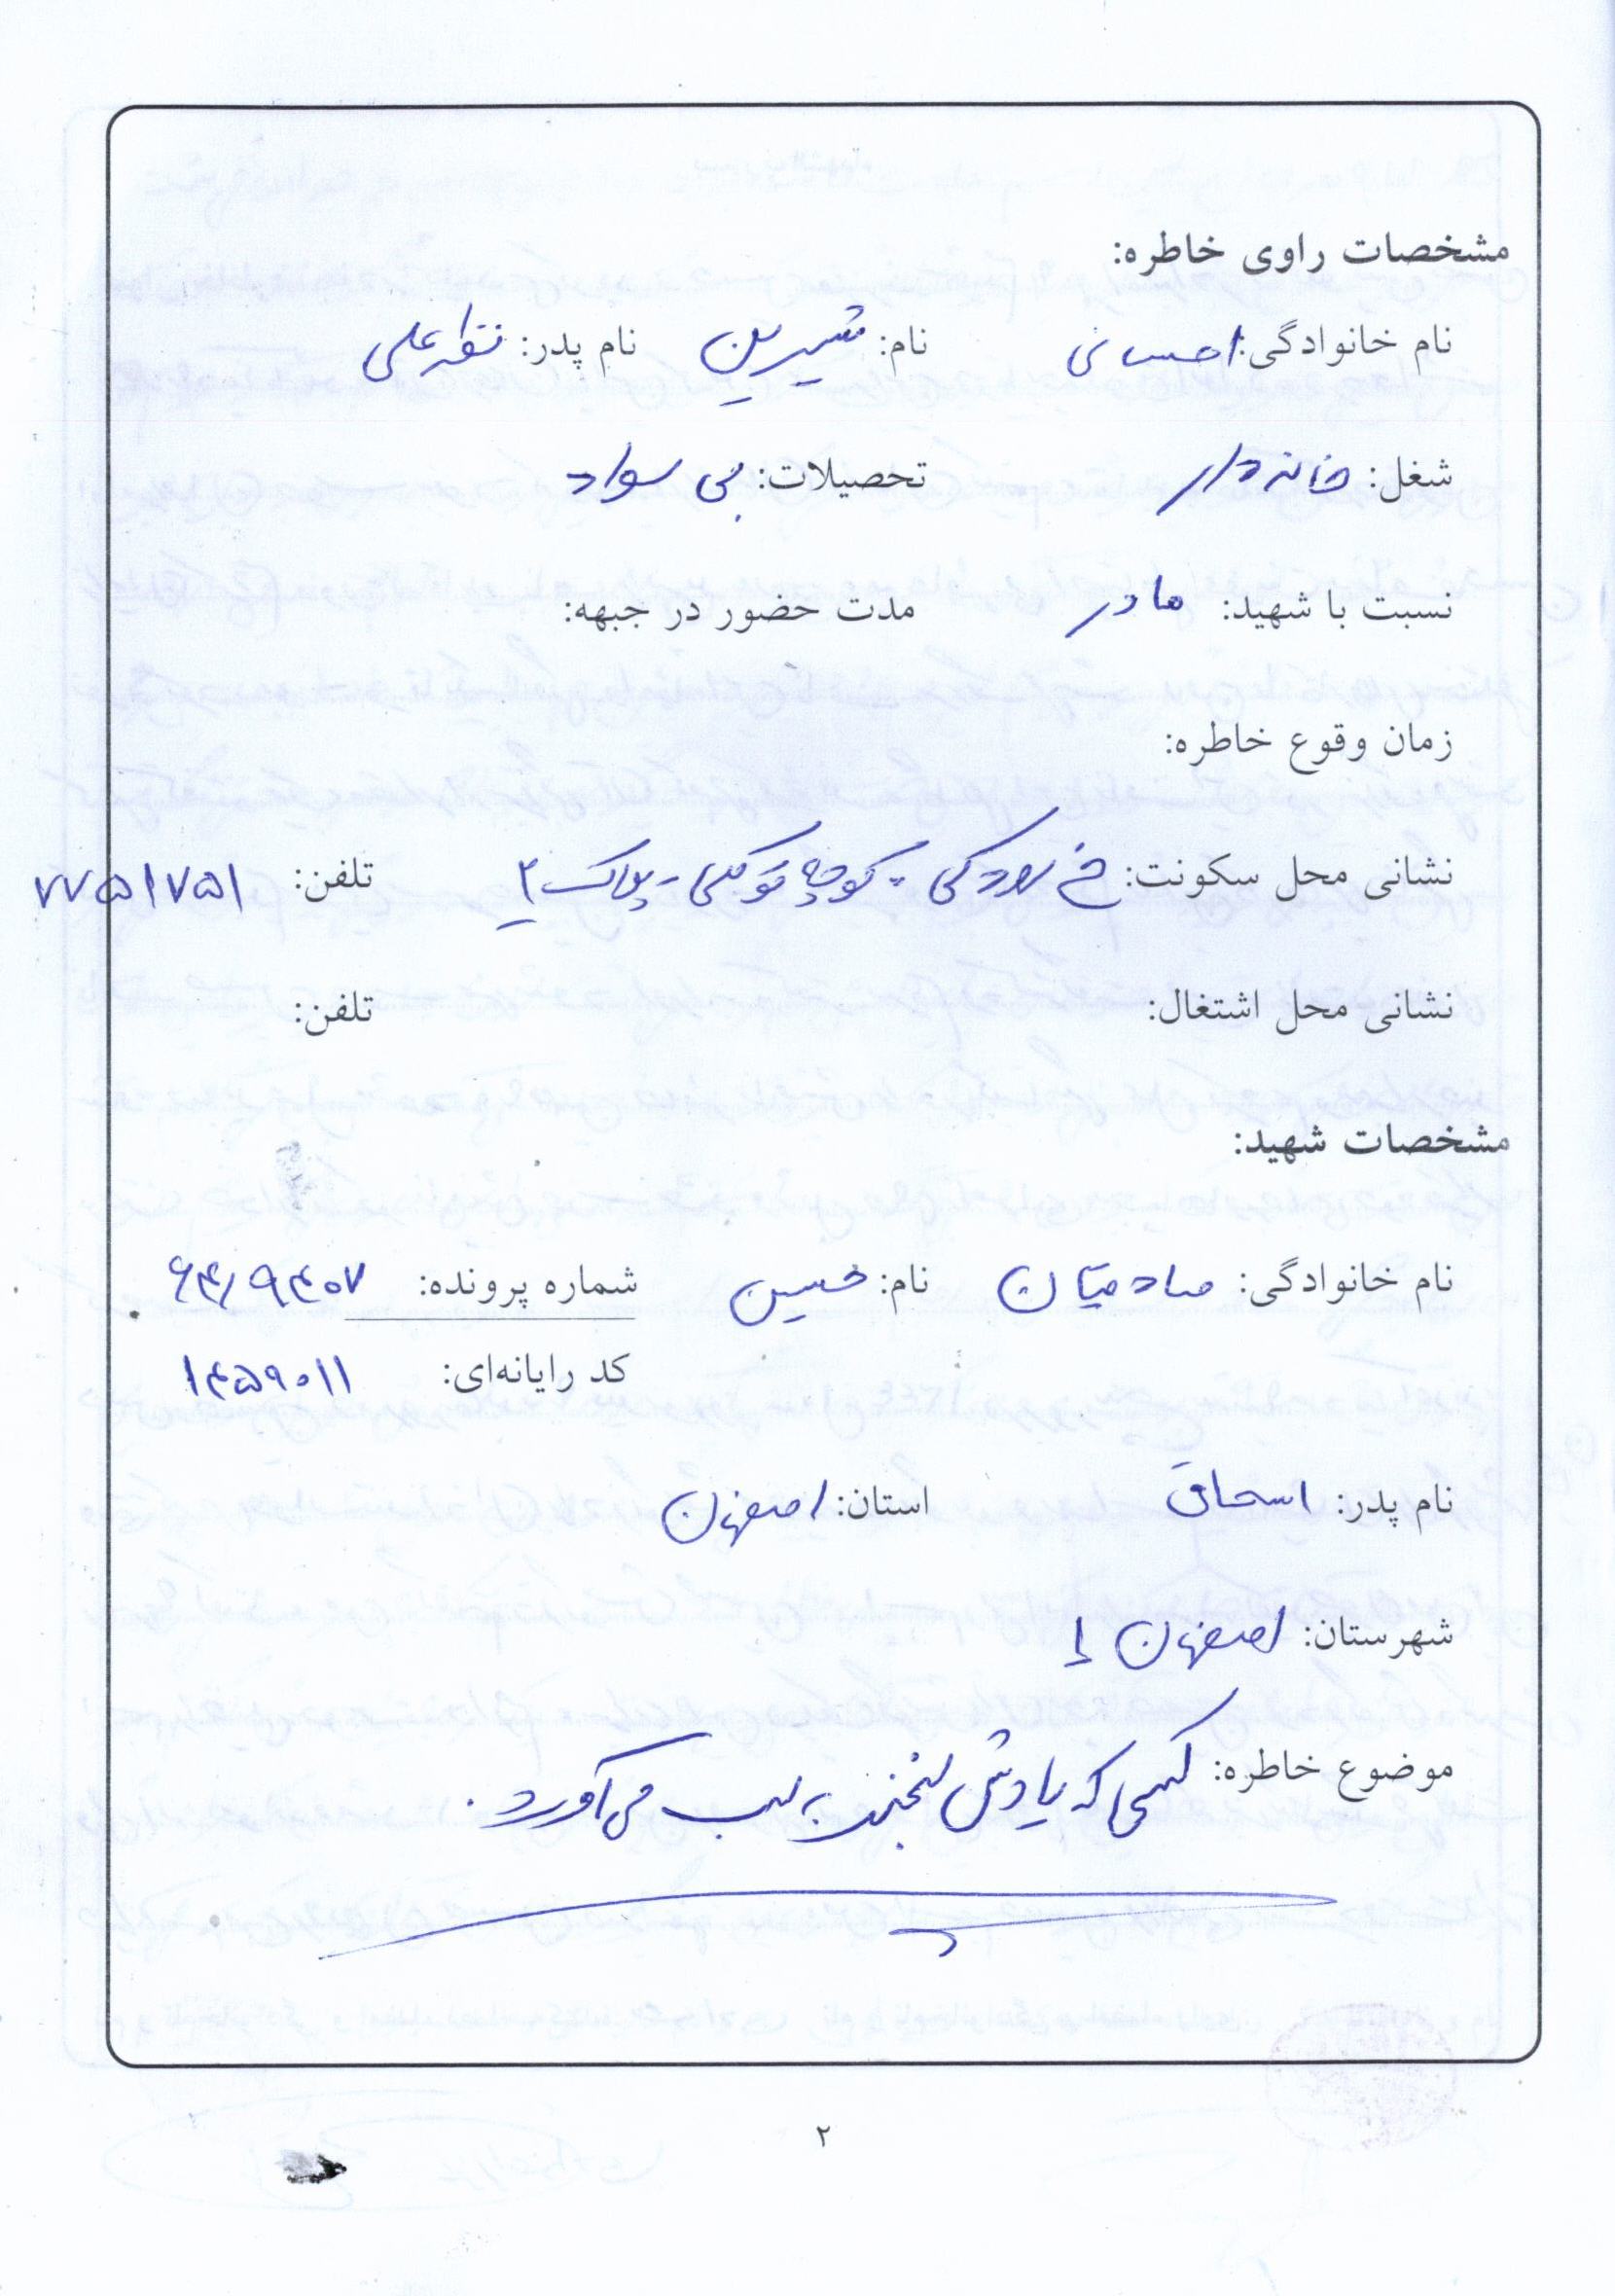 مشخصات راوی خاطره:
نام خانوادگی: احسانی نام: شیرین نام پدر: نظرعلی
شغل: خانه دار تحصیلات: بی سواد
نسبت با شهید: مادر مدت حضور در جبهه:
زمان وقوع خاطره:
نشانی محل سکونت: خ رودکی - کوچه توکلی - پلاک ۲ تلفن: ۷۷۵۱۷۵۱
نشانی محل اشتغال: تلفن:
مشخصات شهید:
نام خانوادگی: صادقیان نام: حسین شماره پرونده: ۶۴/۹۴۰۷
کد رایانه‌ای: ۱۴۵۹۰۱۱
نام پدر: اسحاق استان: اصفهان
شهرستان: اصفهان ۱
موضوع خاطره: کسی که یادش لبخند به لب می آورد.
۲